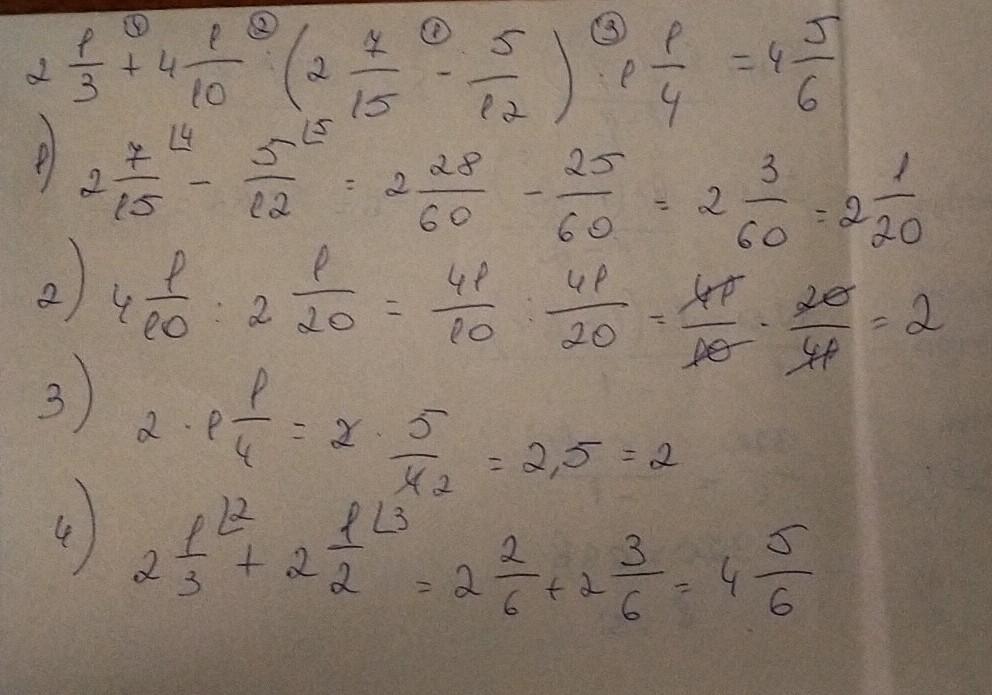 2 1/3 + 4 1/10 : (2 7/15 - 5/12) · 1 1/4 = 4 5/6
④ ② ① ③
1) 2 7/15 ⌊4 - 5/12 ⌊5 = 2 28/60 - 25/60 = 2 3/60 = 2 1/20
2) 4 1/10 : 2 1/20 = 41/10 : 41/20 = 41/10 · 20/41 = 2
3) 2 · 1 1/4 = 2 · 5/4 2 = 2,5 = 2
4) 2 1/3 ⌊2 + 2 1/2 ⌊3 = 2 2/6 + 2 3/6 = 4 5/6